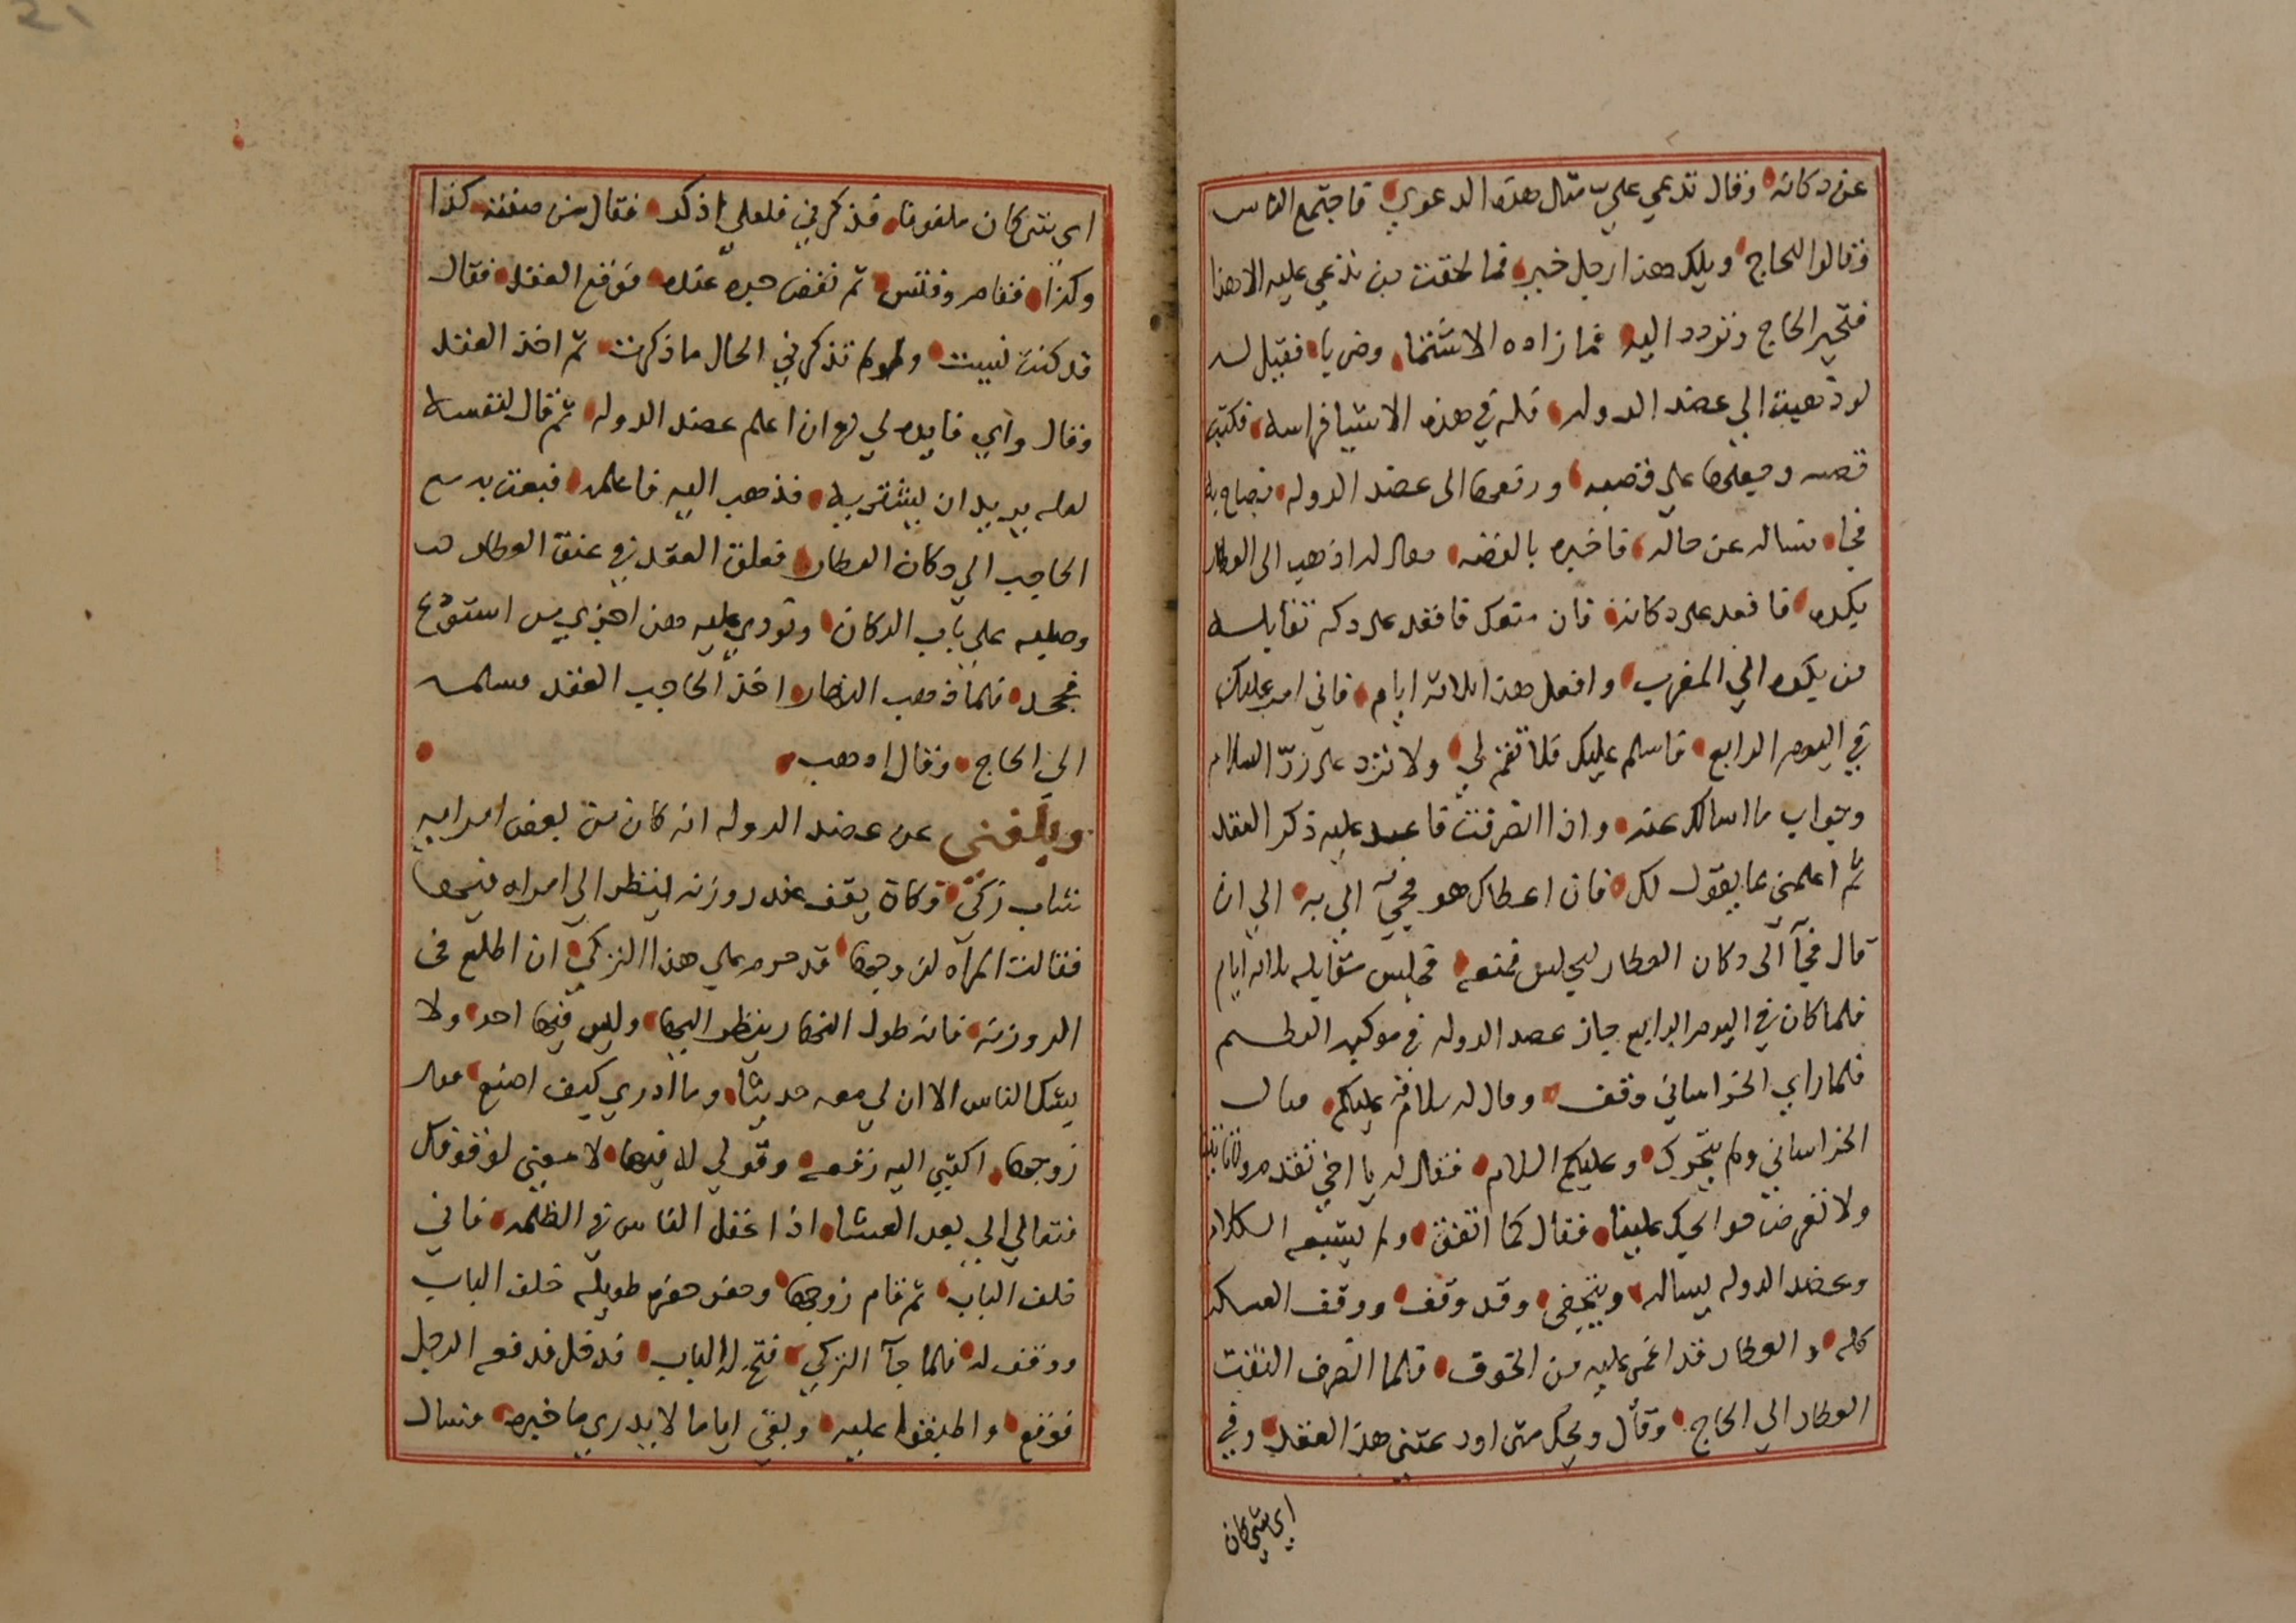 عن دكانه وقال تدعي علي مثل هذه الدعوي فاجتمع الناس
وقالوا للحاج ويلك هذا رجل خير فما لحقت من تدعي عليه الا هذا
فتحير الحاج وتردد اليه فما زاده الا شتما وضربا فقيل له
لو ذهبت الي عضد الدوله فله في هذه الاشيا فراسه فكتب
قصه وجعلها علي قصبه ورفعها الى عضد الدوله فصاح به
فجا فساله عن حاله فاخبره بالقصه فقال له اذهب الى العطار
بكره فاقعد على دكانه فان منعك فاقعد على دكه تقابله
من بكره الي المغرب وافعل هذا ثلاثه ايام فاني امر عليك
في اليوم الرابع فاسلم عليك فلا تقم لي ولا تزد على رد السلام
وجواب ما اسالك عنه واذا انصرفت فاعد عليه ذكر العقد
ثم اعلمني بما يقول لك فان اعطاك هو فجيء الي به الي ان
قال فجآ الى دكان العطار ليجلس فمنعه فجلس مقابله ثلاثه ايام
فلما كان في اليوم الرابع جاز عضد الدوله في موكبه العظيم
فلما راي الخراساني وقف وقال له سلام عليكم فقال
الخراساني ولم يتحرك وعليكم السلام فقال له يا اخي تقدم ولا تاتينا
ولا تعرض حوايجك علينا فقال كما اتفق ولم يشبع الكلام
وعضد الدوله يساله ويتحفى وقد وقف ووقف العسكر
كله والعطار قد اغمي عليه من الخوف فلما انصرف التفت
العطار الي الحاج وقال ويحك متى اودعتني هذا العقد وفي
اي شي كان
اي شي كان ملفوفا فذكرني فلعلي اذكر فقال من صفته كذا
وكذا فقام وفتش ثم نفض جره عنده فوقع العقد فقال
قد كنت نسيت ولو لم تذكرني الحال ما ذكرت ثم اخذ العقد
وقال واي فايده لي في ان اعلم عضد الدوله ثم قال لنفسه
لعله يريد ان يشتريه فذهب اليه فاعلمه فبعث به مع
الحاجب الي دكان العطار فعلق العقد في عنق العطار
وصلبه علي باب الدكان ونودي عليه هذا جزي من استودع
فجحد فلما ذهب النهار اخذ الحاجب العقد فسلمه
الي الحاج وقال اذهب
وبلغني عن عضد الدوله انه كان من بعض امرايه
شاب تركي وكان يقف عند روزنه ينظر الي امراه فيها
فقالت المراه لزوجها قد حرم علي هذا التركي ان اطلع في
الروزنه فانه طول النهار ينظر اليها وليس فيها احد ولا
يشك الناس الا ان لي معه حديثا وما ادري كيف اصنع فقال
زوجها اكتبي اليه رقعه وقولي لا فيها لا معني لوقوفك
فتعالي الي بعد العشا اذا غفل الناس في الظلمه فاني
خلف الباب ثم قام زوجها وحفر حفره طويله خلف الباب
ووقف له فلما جآ التركي فتح له الباب فدخل فدفعه الرجل
فوقع واطبقوا عليه وبقي اياما لا يدري ما خبره فسال